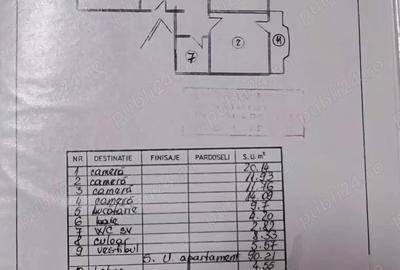 11
2
7
NR DESTINATIE FINISAJE PARDOSELI S.U. m²
1 cameră 20.14
2 cameră 11.93
3 cameră 11.76
4 cameră 14.09
5 bucătarie 9.7
6 baie 4.20
7 WC sv 2.82
8 culoar 8.33
9 vestibul 5.57
S. U. apartament 90.21
4.56